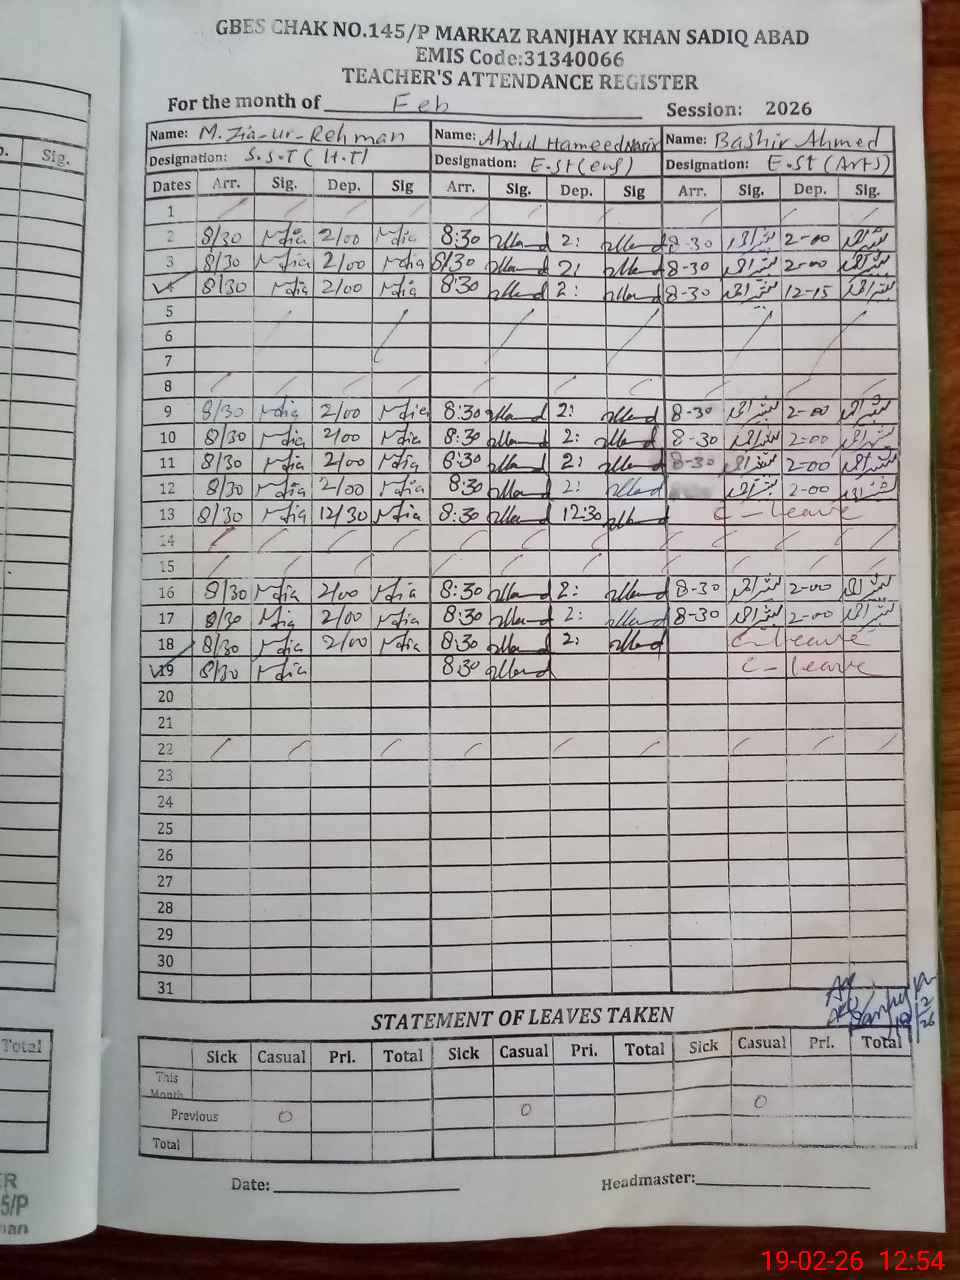 GBES CHAK NO.145/P MARKAZ RANJHAY KHAN SADIQ ABAD
EMIS Code:31340066
TEACHER'S ATTENDANCE REGISTER
For the month of Feb Session: 2026
Name: M. Zia-ur-Rehman Name: Abdul Hameed Nasir Name: Bashir Ahmed
Designation: S.S.T (H.T) Designation: E.St (eng) Designation: E.St (Arts)
Dates Arr. Sig. Dep. Sig Arr. Sig. Dep. Sig Arr. Sig. Dep. Sig.
1
2 8/30 Mzia 2/00 Mzia 8:30 2: 8-30 بشیراحمد 2-00 بشیراحمد
3 8/30 Mzia 2/00 Mzia 8/30 2: 8-30 بشیراحمد 2-00 بشیراحمد
4 8/30 Mzia 2/00 Mzia 8:30 2: 8-30 بشیراحمد 12-15 بشیراحمد
5
6
7
8
9 8/30 Mzia 2/00 Mzia 8:30 2: 8-30 بشیراحمد 2-00 بشیراحمد
10 8/30 Mzia 2/00 Mzia 8:30 2: 8-30 بشیراحمد 2-00 بشیراحمد
11 8/30 Mzia 2/00 Mzia 8:30 2: 8-30 بشیراحمد 2-00 بشیراحمد
12 8/30 Mzia 2/00 Mzia 8:30 2: بشیراحمد 2-00 بشیراحمد
13 8/30 Mzia 12/30 Mzia 8:30 12:30 C-leave
14
15
16 8/30 Mzia 2/00 Mzia 8:30 2: 8-30 بشیراحمد 2-00 بشیراحمد
17 8/30 Mzia 2/00 Mzia 8:30 2: 8-30 بشیراحمد 2-00 بشیراحمد
18 8/30 Mzia 2/00 Mzia 8:30 2: C-leave
19 8/30 Mzia 8:30 C-leave
20
21
22
23
24
25
26
27
28
29
30
31
STATEMENT OF LEAVES TAKEN
Sick Casual Pri. Total Sick Casual Pri. Total Sick Casual Pri. Total
This Month
Previous 0 0 0
Total
Date: Headmaster:
Sig.
Total
5/P
19-02-26 12:54